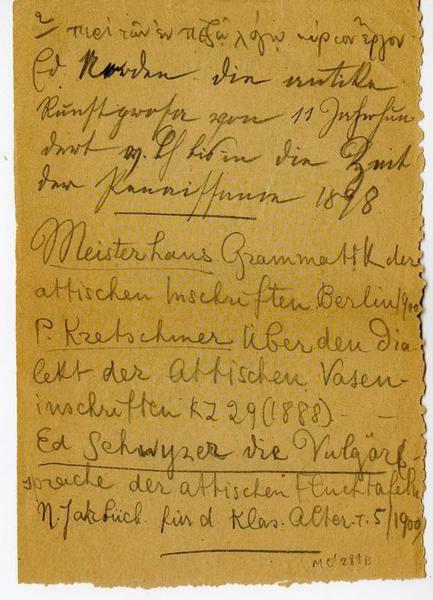 2 περὶ τῶν ἐν πεζῷ λόγῳ κύριον ἔργον
Ed Norden die antike
Kunstprosa von 11 Jahrhun
dert v. Ch bis in die Zeit
der Renaissance 1898
Meisterhans Grammatik der
attischen Inschriften. Berlin 1900
P. Kretschmer Über den Dia-
lekt der Attischen Vasen-
inschriften KZ 29 (1888). -
Ed Schwyzer die Vulgär-
sprache der attischen Fluchtafeln
N. Jahrbüch. für d. Klas. Alter. τ. 5/1900